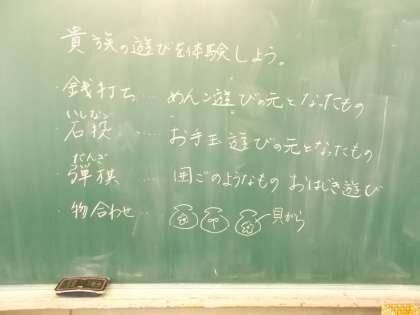 貴族の遊びを体験しよう。
・銭打ち … めんこ遊びの元となったもの
いしなご
・石投 … お手玉遊びの元となったもの
たんご
・弾棋 … 囲ごのようなもの おはじき遊び
・物合わせ … 貝がら